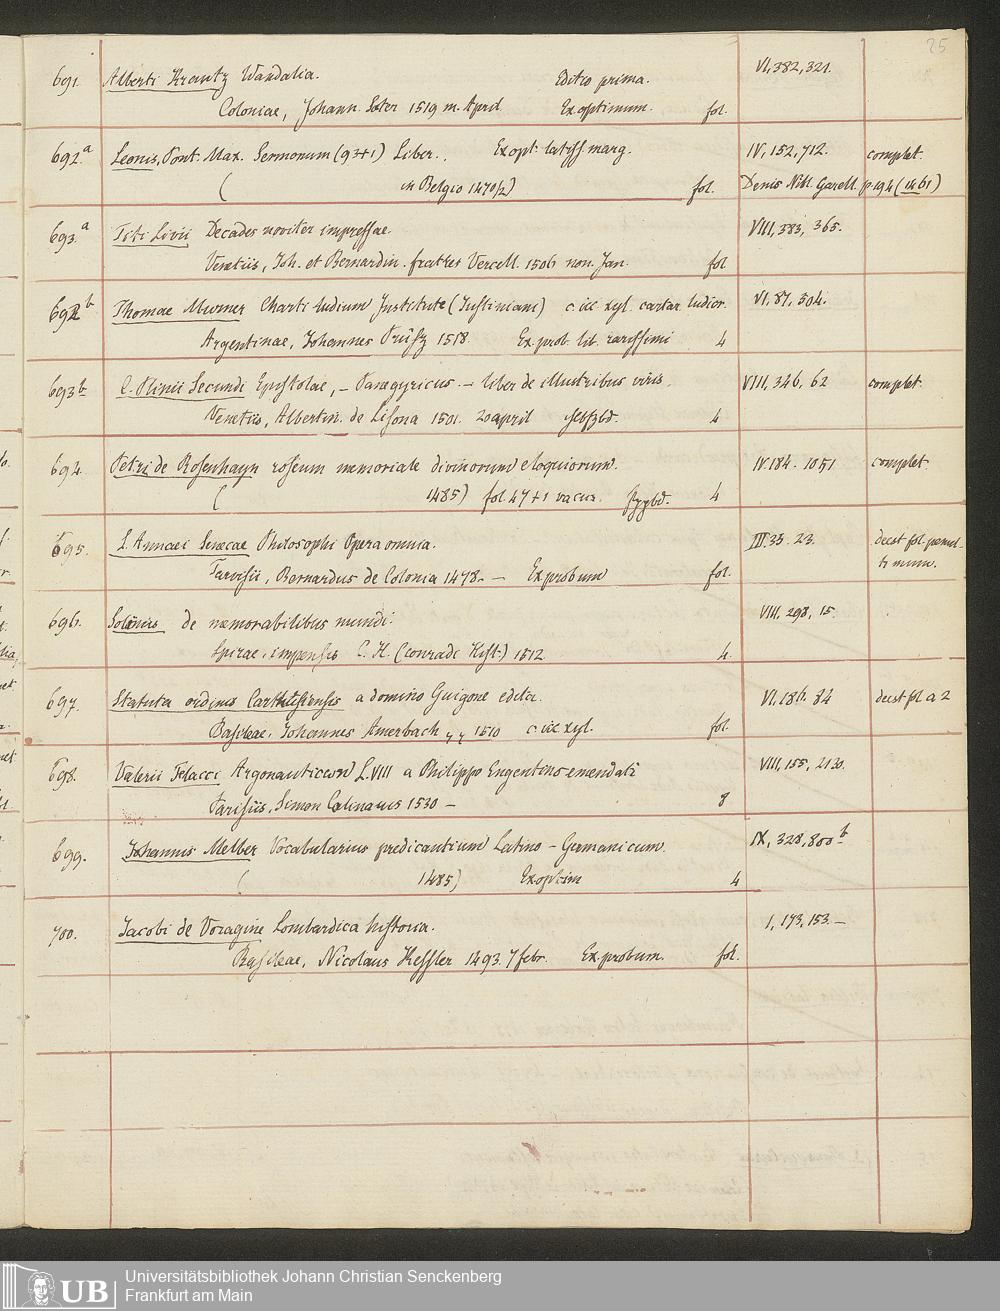 25
691. Alberti Krantz Wandalia. Editio prima. VI, 382, 321.
Coloniae, Johann. Soter 1519 m. April Ex. optimum. fol.
692.a Leonis, Pont. Max. Sermonum (93+1) Liber. Ex opt. latiss. marg. IV, 152, 712. complet.
( in Belgio 1470/2) fol. Denis Bibl. Garell. p 194 (1461)
693.a Titi Livii Decades noviter impressae. VIII, 383, 365.
Venetiis, Joh. et Bernardin. fratres Vercell. 1506 non. Jan. fol
692b Thomae Murner Charti ludium Institute (Justiniani) c. ic. xyl. cartar. ludior. VI, 87, 304.
Argentinae, Johannes Prüss 1518. Ex. prob. lib. rarissimi 4
693b C. Plinii Secundi Epistolae, – Panegyricus. – liber de illustribus viris. VIII, 346, 62 complet.
Venetiis, Albertin. de Lisona 1501. 20 april 4
694. Petri de Rosenhayn roseum memoriale divinorum eloquiorum. IV. 184. 1051 complet.
( 1485) fol 47+1 vacua. 4
695. L. Annaei Senecae Philosophi Opera omnia. III. 35. 23. deest fol. penul-
timum.
Tarvisii, Bernardus de Colonia 1478. – Ex probum fol.
696. Solinus de memorabilibus mundi: VIII, 298, 15.
Spirae, impensis C. H. (Conradi Hist.) 1512 4.
697. Statuta ordinis Carthusiensis a domino Guigone edita. VI, 186. 84 deest fol. a 2
Basileae, Johannes Amerbach 1510 c. ic. xyl. fol.
698. Valerii Flacci Argonauticon L. VIII a Philippo Engentino emendati VIII, 155, 2130.
Parisiis, Simon Colinaeus 1530 – 8
699. Johannis Melber Vocabularius predicantium Latino – Germanicum. IX, 328, 800b
( 1485) Ex. optim 4
700. Jacobi de Voragine Lombardica historia. I, 173, 153. –
Basileae, Nicolaus Kessler 1493. 7 febr. Ex. probum. fol.
UB Universitätsbibliothek Johann Christian Senckenberg
Frankfurt am Main